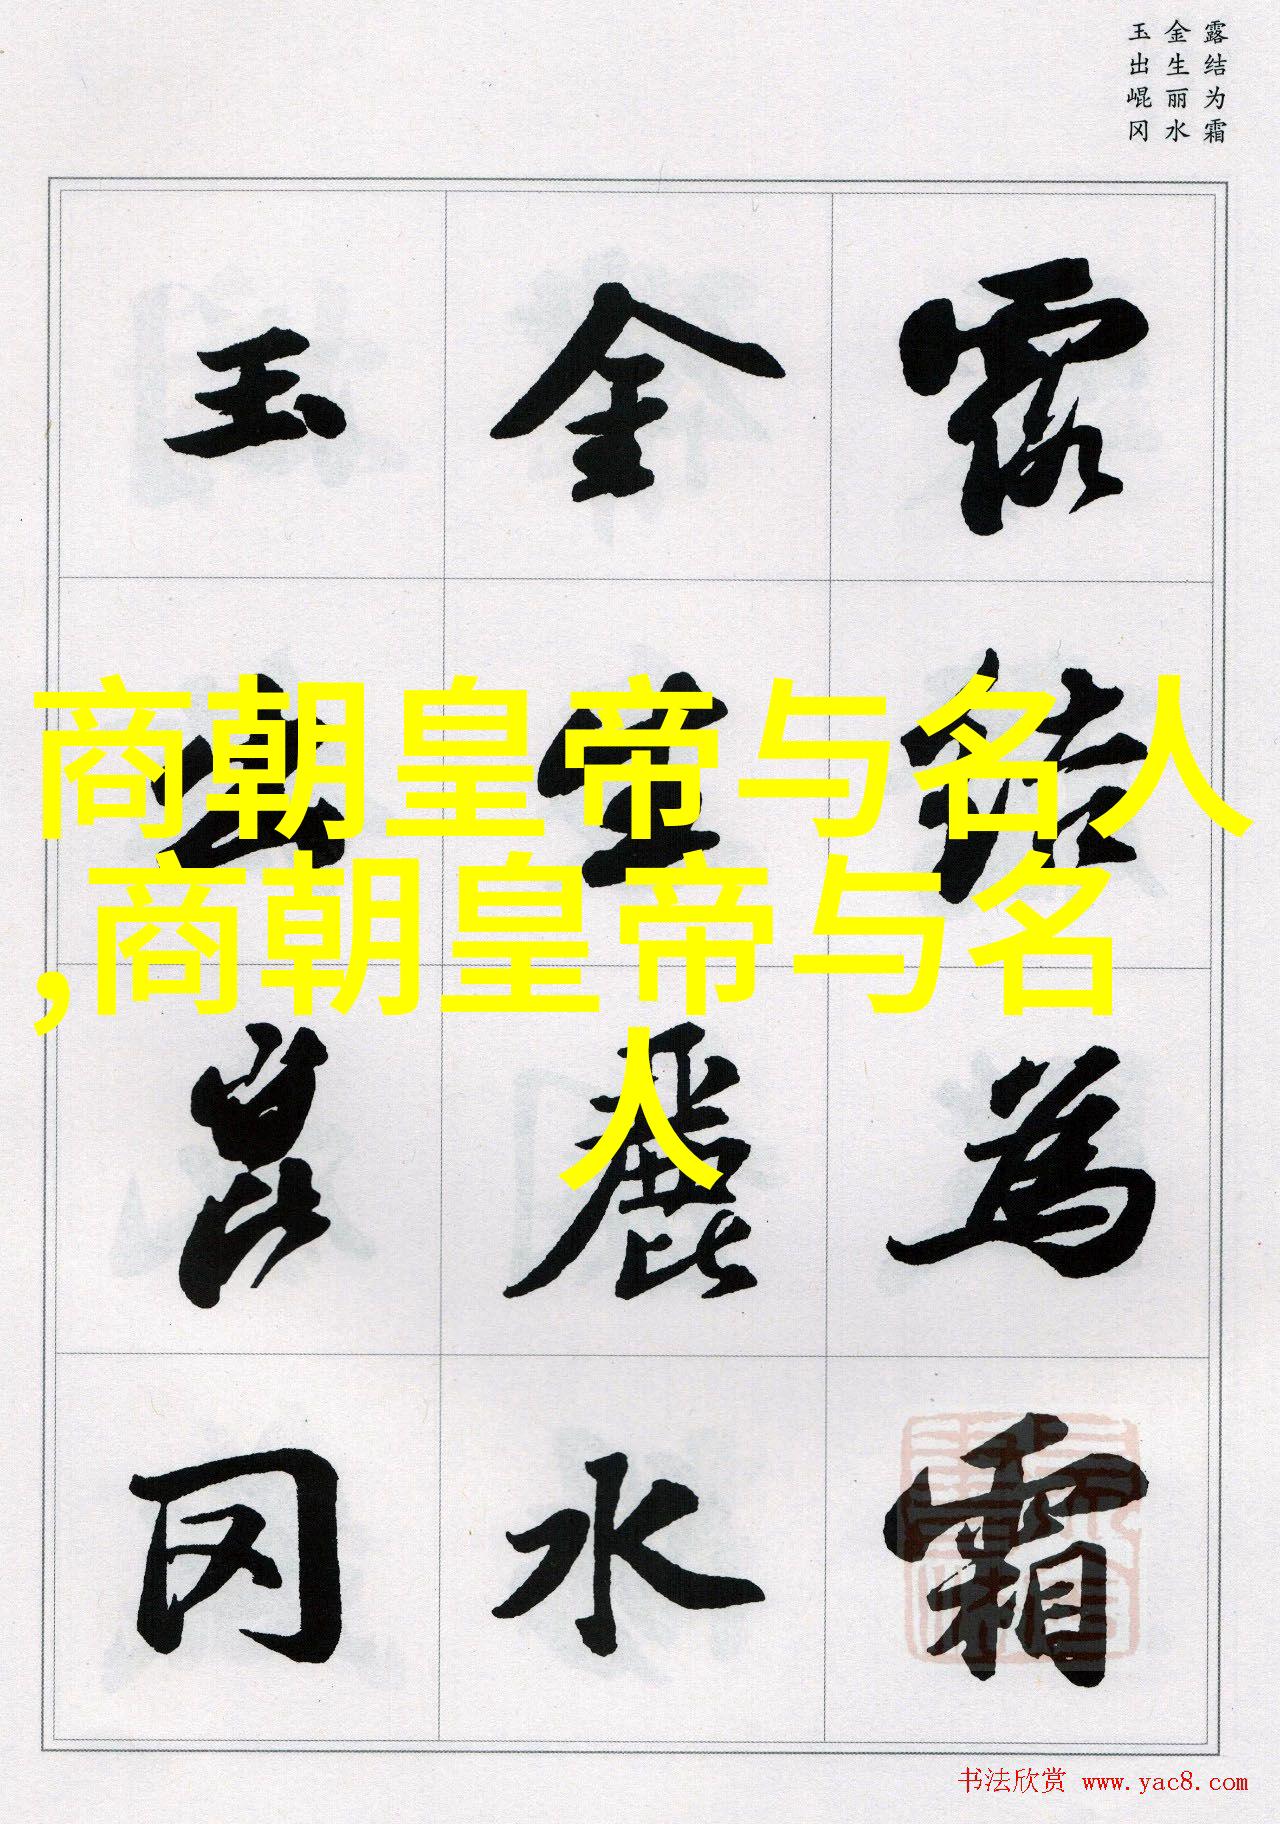 露结为霜
金生丽水
玉出崐冈
露結為霜
金生麗水
玉出崑冈
商朝皇帝与名人
,商朝皇帝与名
人
书法欣赏 www.yac8.com